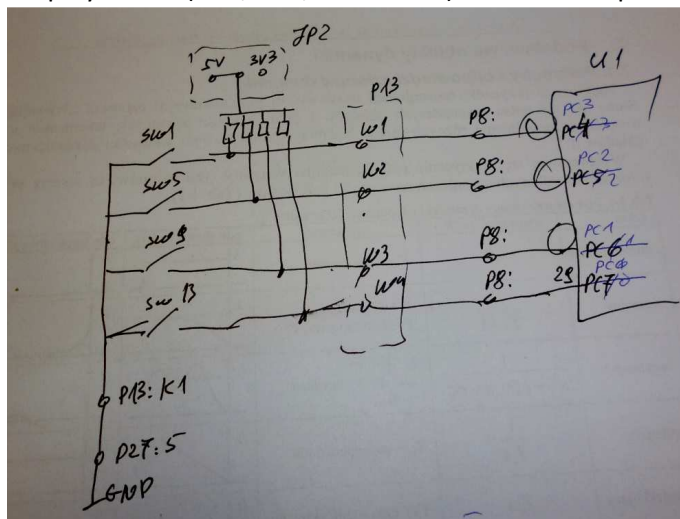 JP2
5V 3V3
U1
P13
SW1
W1
P8:
PC3
PC4
SW5
W2
P8:
PC2
PC5
SW9
W3
P8:
PC1
PC6
SW 13
W4
P8:
29
PC0
PC7
P13: K1
P27: 5
GND